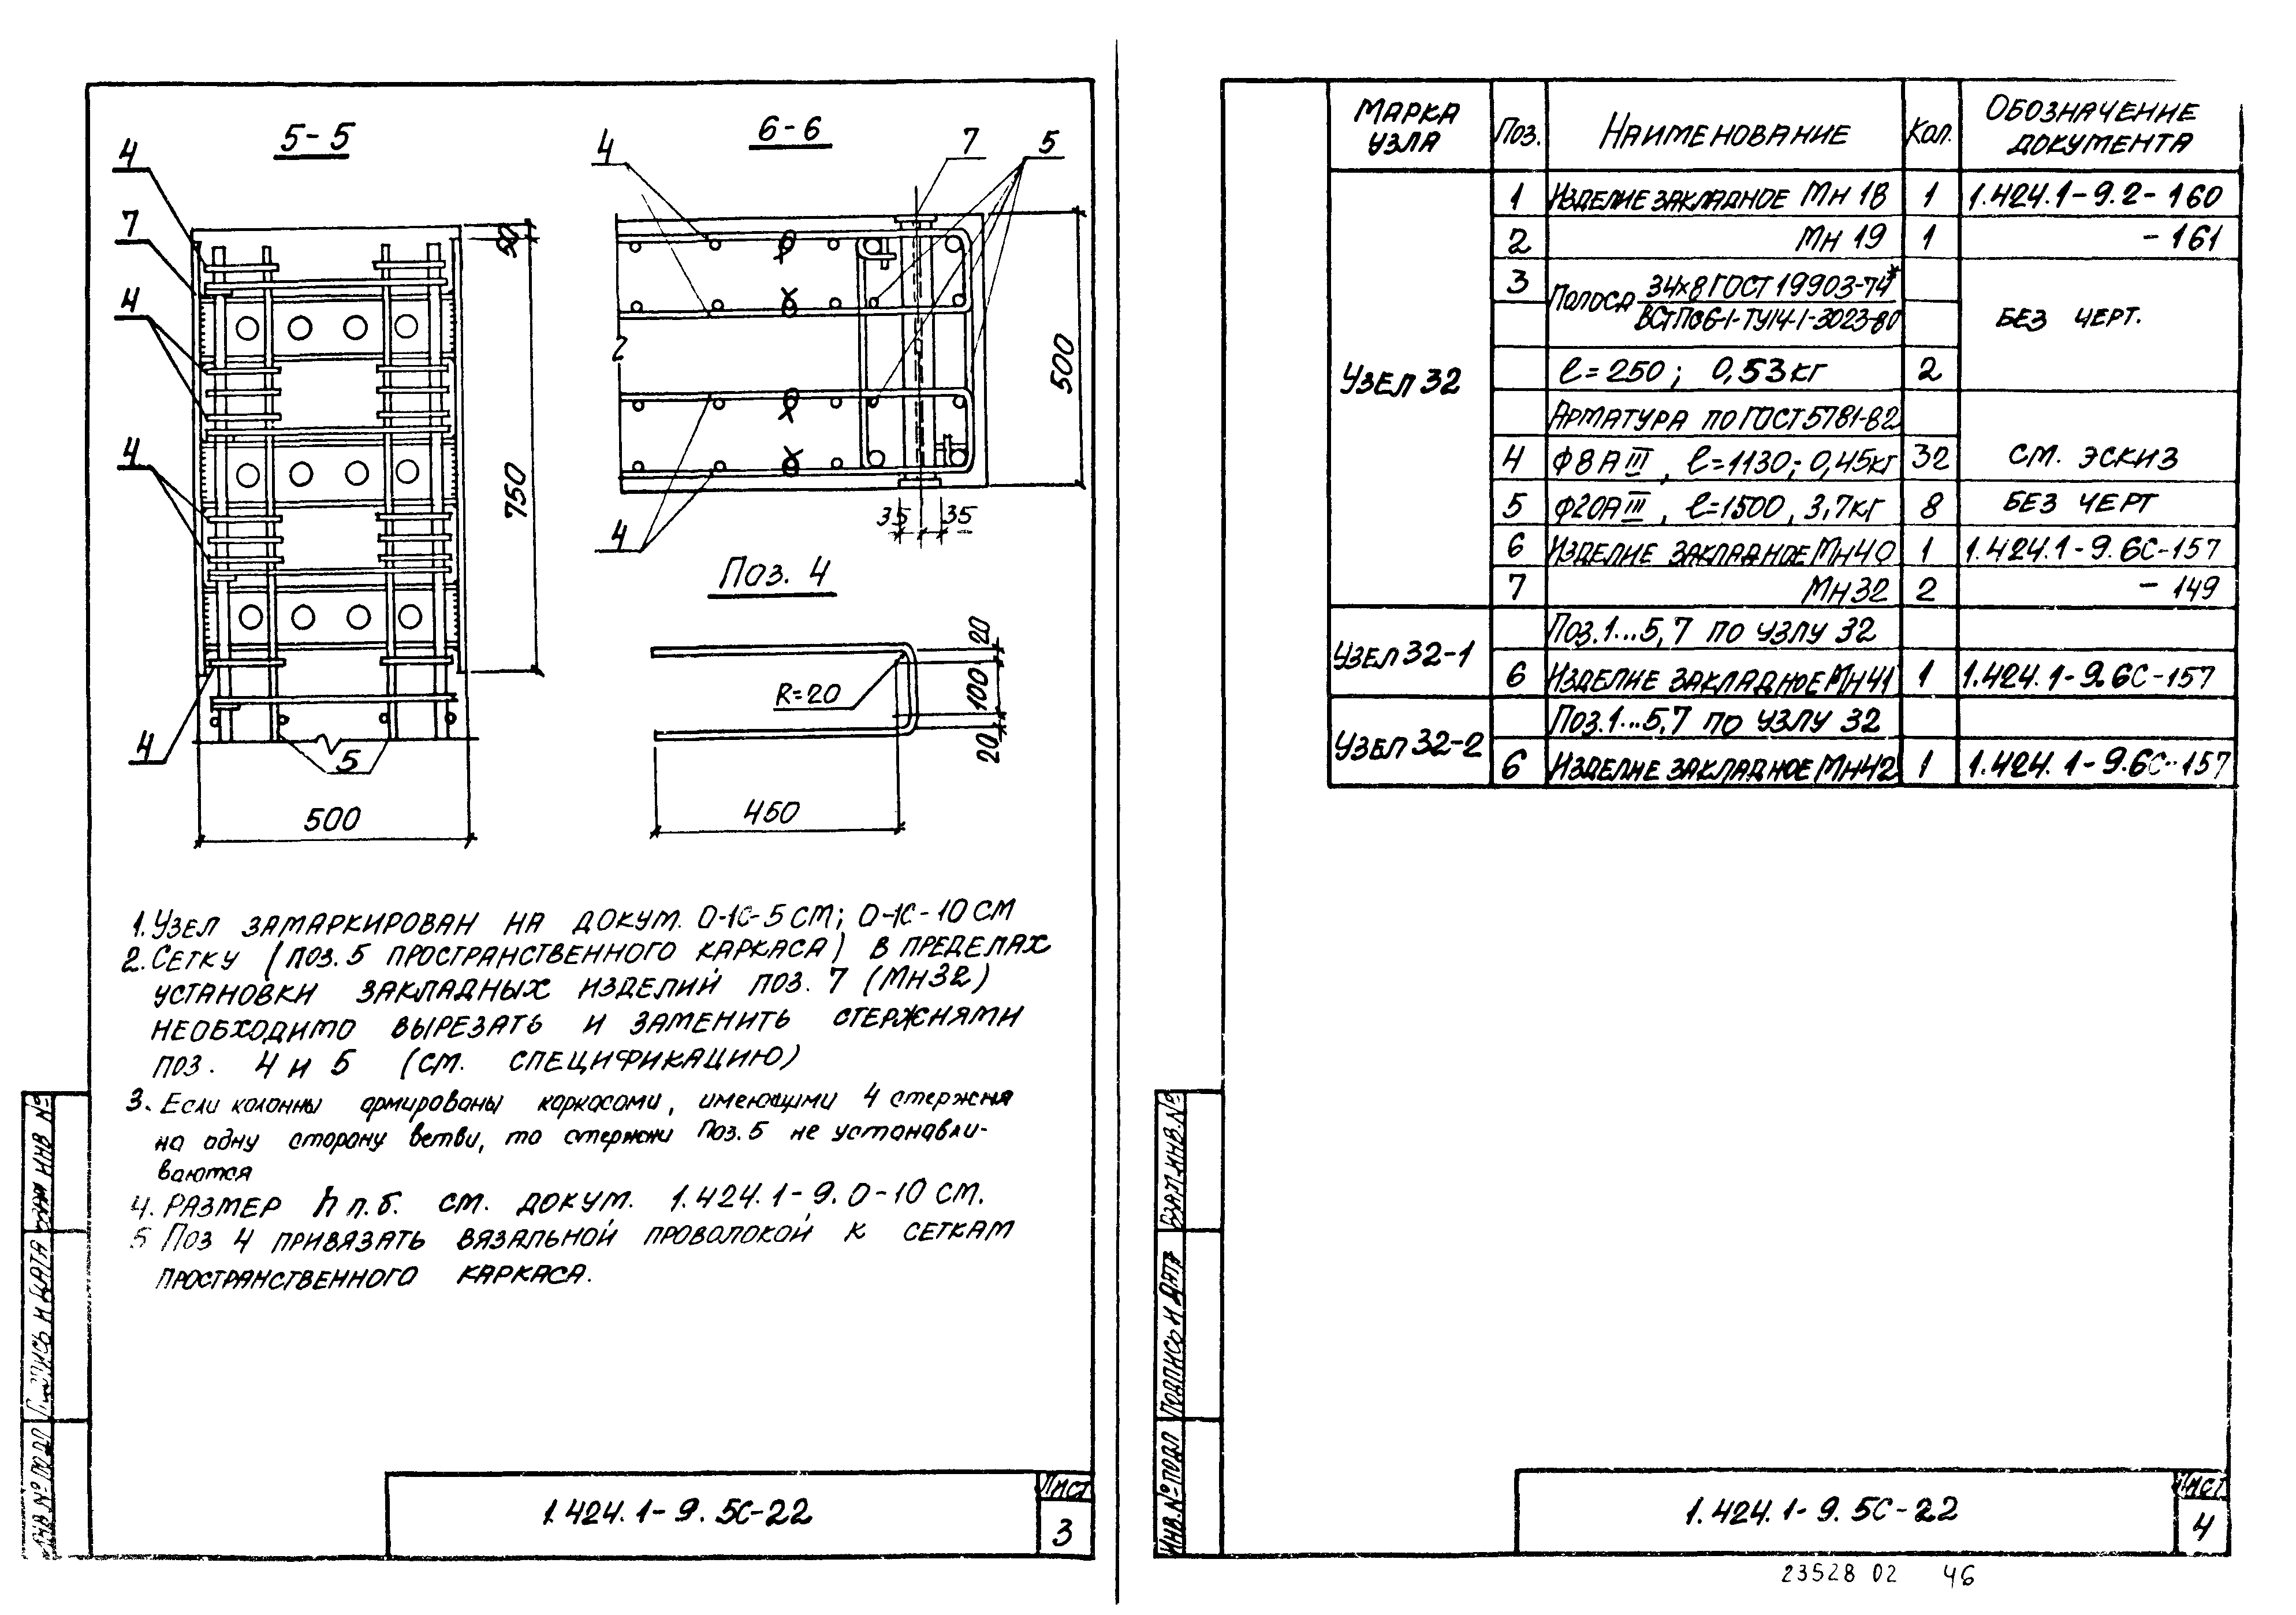 5-5
4
7
4
4
4
5
750
500
6-6
4
7
5
4
500
35
35
Поз. 4
R=20
20
100
20
450
1. Узел замаркирован на докум. 0-1С-5СМ; 0-1С-10СМ
2. Сетку (поз. 5 пространственного каркаса) в пределах
установки закладных изделий поз. 7 (МН32)
необходимо вырезать и заменить стержнями
поз. 4 и 5 (см. спецификацию)
3. Если колонны армированы каркасами, имеющими 4 стержня
на одну сторону ветви, то стержни Поз. 5 не устанавли-
ваются
4. Размер h п.б. см. докум. 1.424.1-9.0-10 СМ.
5 Поз 4 привязать вязальной проволокой к сеткам
пространственного каркаса.
1.424.1-9.5С-22
Лист
3
Марка узла Поз. Наименование Кол. Обозначение документа
Узел 32
1 Изделие закладное МН 18 1 1.424.1-9.2-160
2 МН 19 1 -161
3 Полоса 34×8 ГОСТ 19903-74*
ВСт ПС6-1-ТУ14-1-3023-80
без черт.
ℓ=250; 0,53кг 2
Арматура по ГОСТ 5781-82
4 Ф8АIII, ℓ=1130; 0,45кг 32 см. эскиз
5 Ф20АIII, ℓ=1500, 3,7кг 8 без черт
6 Изделие закладное МН40 1 1.424.1-9.6С-157
7 МН32 2 -149
Узел 32-1
Поз.1...5,7 по узлу 32
6 Изделие закладное МН41 1 1.424.1-9.6С-157
Узел 32-2
Поз.1...5,7 по узлу 32
6 Изделие закладное МН42 1 1.424.1-9.6С-157
Взам.инв.№
Подпись и дата
Инв.№ подл
1.424.1-9.5С-22
Лист
4
23528 02 46